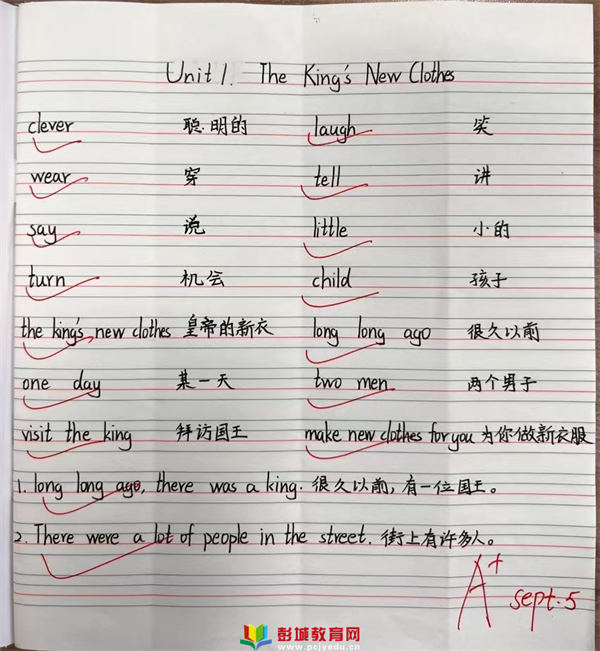 Unit 1. The King's New Clothes
clever 聪明的 laugh 笑
wear 穿 tell 讲
say 说 little 小的
turn 机会 child 孩子
the king's new clothes 皇帝的新衣 long long ago 很久以前
one day 某一天 two men 两个男子
visit the king 拜访国王 make new clothes for you 为你做新衣服
1. long long ago, there was a king. 很久以前,有一位国王。
2. There were a lot of people in the street. 街上有许多人。
A+ sept.5
彭城教育网
www.pcjyedu.cn